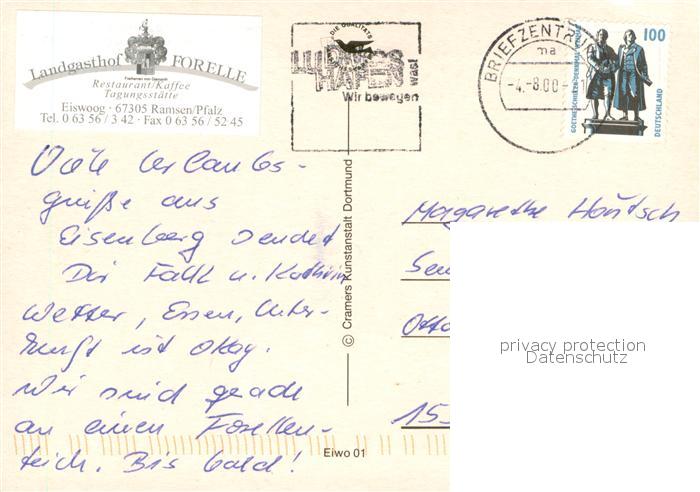 Landgasthof FORELLE
Restaurant/Kaffee
Tagungsstätte
Eiswoog · 67305 Ramsen/Pfalz
Tel. 0 63 56 / 3 42 · Fax 0 63 56 / 52 45
DIE QUALITÄTS
LUDWIGS
HAFEN
was!
Wir bewegen
BRIEFZENTR
ma
-4.-8.00-
100
GOETHE-SCHILLER-DENKMAL WEIMAR
DEUTSCHLAND
Viele Urlaubs-
grüße aus
Eisenberg sendet
Dir Falk u. Kathrin
Wetter, Essen, Unter-
kunft ist okay.
Wir sind gerade
an einem Forellen-
teich. Bis bald!
© Cramers Kunstanstalt Dortmund
Eiwo 01
Margarethe
Otto
15
privacy protection
Datenschutz